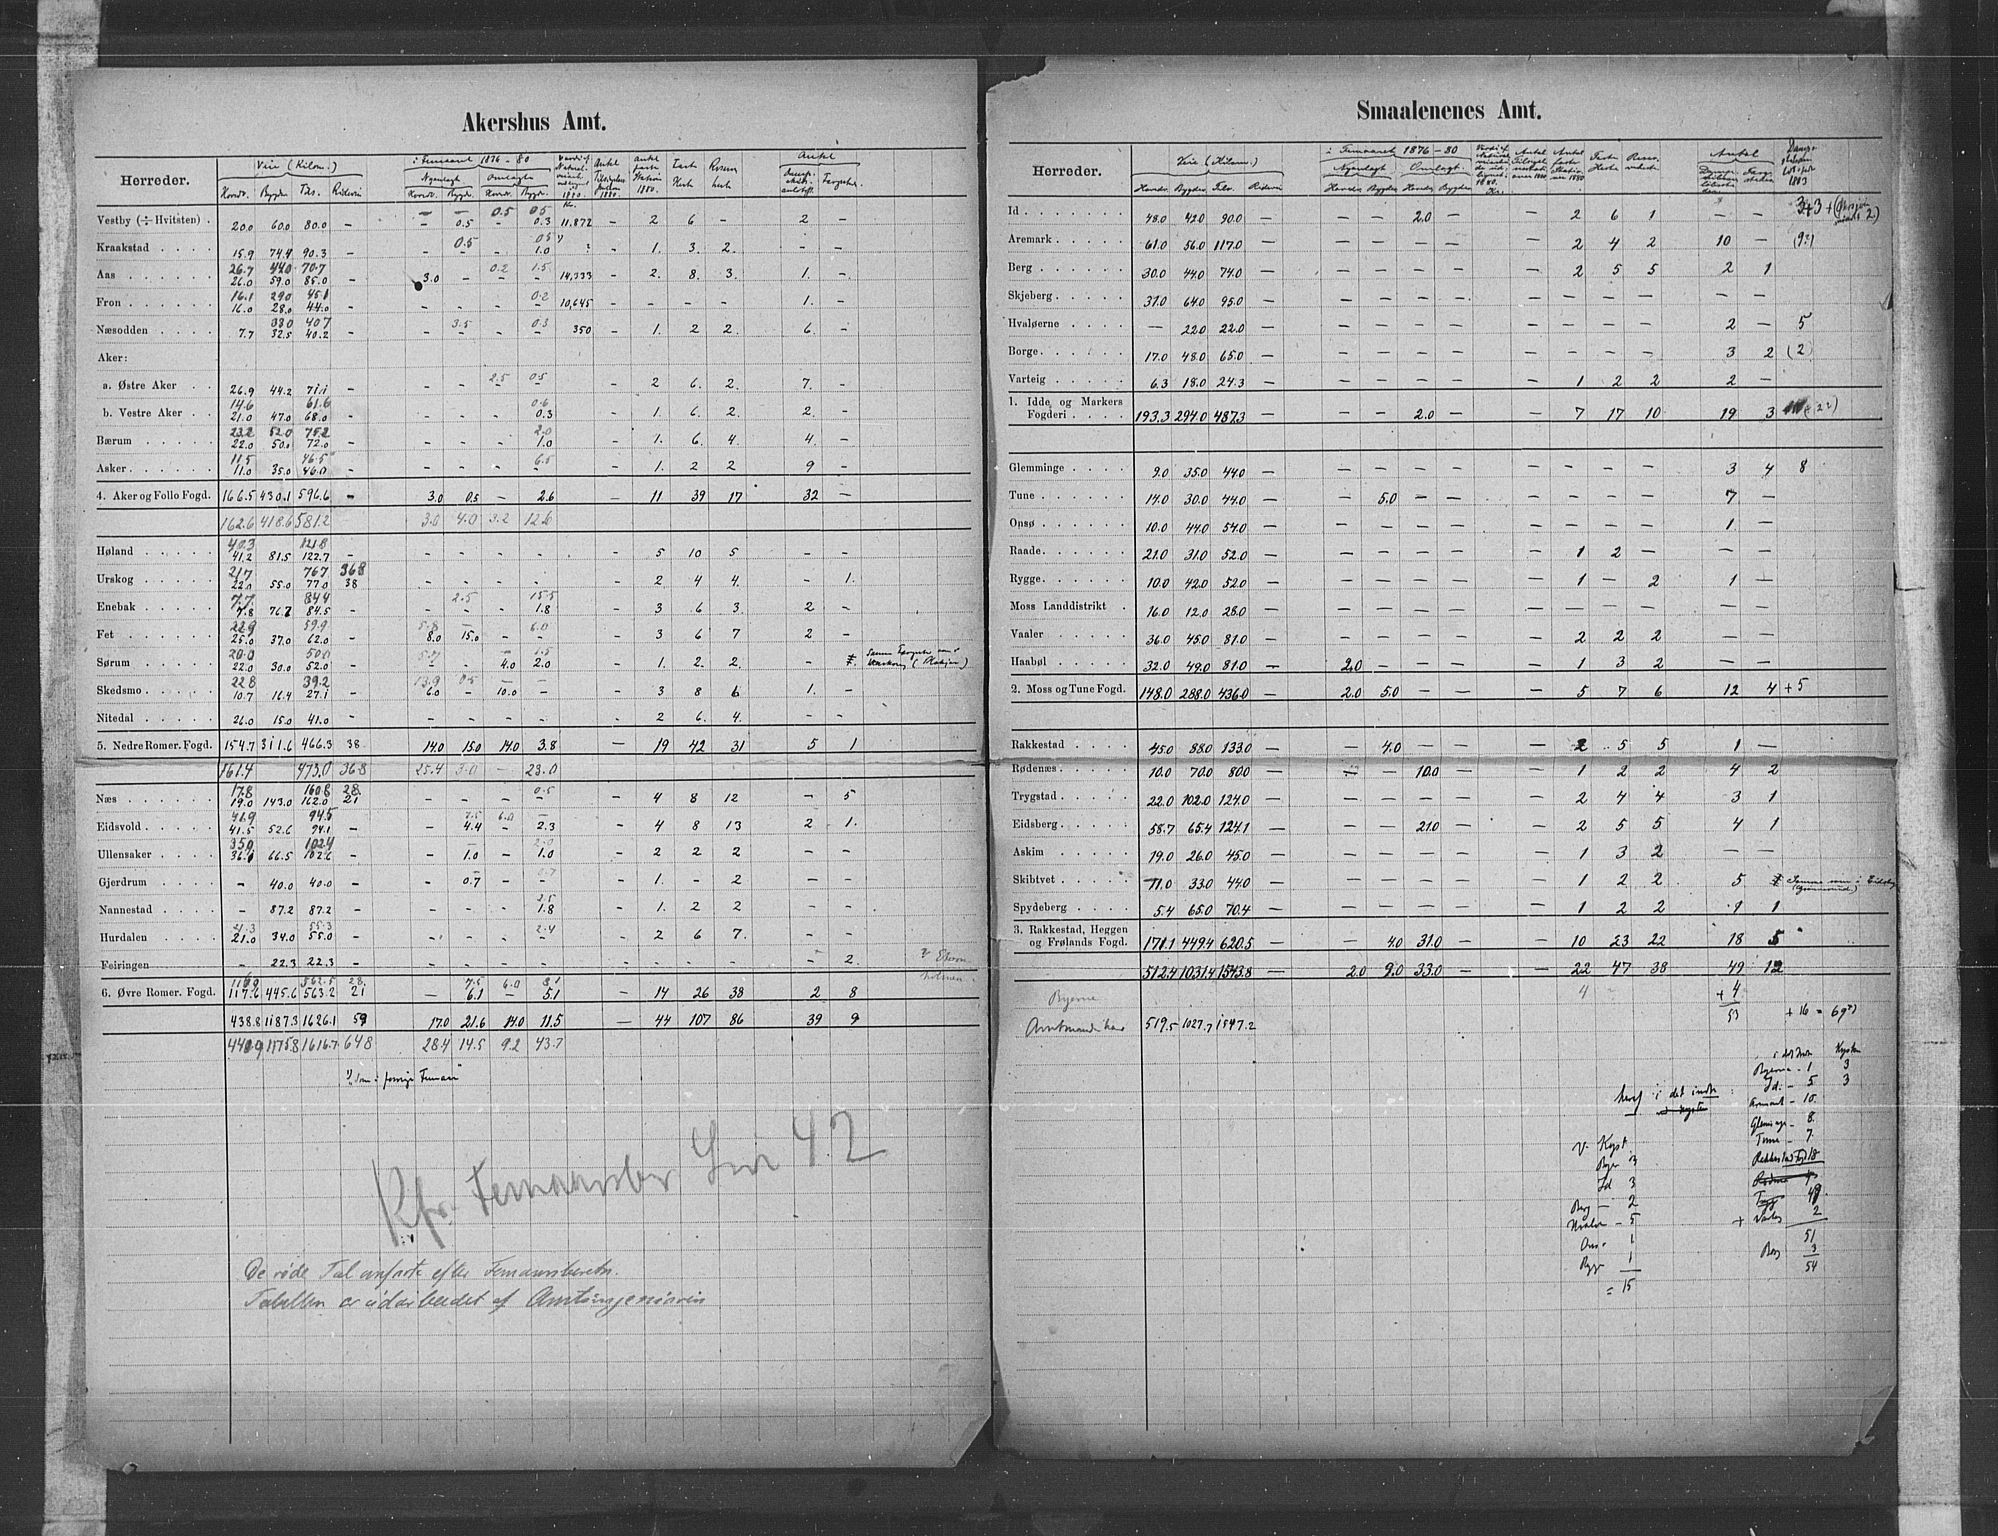 Akershus Amt.
Herreder. Veie (Kilom.) i Femaaret 1876-80 Antal
Hovdv. Bygdv. Tils. Ridevei Nyanlagte Omlagte
Vestby (÷ Hvitsten) . 20.0 60.0 80.0 - - 0.5 - 0.3 11.872 - 2 6 - 2 -
Kraakstad . . . . 15.9 74.4 90.3 - - - - 1.0 - 1. 3. 2. - -
Aas . . . . . . 26.7 44.0 70.7 0.2 1.5
26.0 59.0 85.0 - 3.0 - - - 14,333 - 2. 8. 3. 1. -
Fron . . . . . 16.1 29.0 45.1 0.2
16.0 28.0 44.0 - - - - - 10,645 - - - - 1. -
Næsodden . . . . 33.0 40.7 3.5 0.3
7.7 32.5 40.2 - - - - - 350 - 1. 2 2. 6. -
Aker:
a. Østre Aker . . 2.5 0.5
26.9 44.2 71.1 - - - - - - 2 6. 2. 7. -
b. Vestre Aker . . 14.6 61.6 0.6
21.0 47.0 68.0 - - - - 0.3 - 1. 6. 2. 2. -
Bærum . . . . . 23.2 52.0 75.2 2.0
22.0 50.0 72.0 - - - - 1.0 - 1. 6. 4. 4. -
Asker . . . . . 11.5 46.5 6.5
11.0 35.0 46.0 - - - - - - 1. 2 2 9 -
4. Aker og Follo Fogd. 166.5 430.1 596.6 - 3.0 0.5 - 2.6 - 11 39 17 32 -
162.6 418.6 581.2 3.0 4.0 3.2 12.6
Høland . . . . . 40.3 121.8
41.2 81.5 122.7 - - - - - - 5 10 5 - -
Urskog . . . . . 21.7 76.7 36.8
22.0 55.0 77.0 38 - - - - - 2 4 4. - 1.
Enebak . . . . . 7.7 84.4 2.5 15.5
7.8 76.7 84.5 - - - - 1.8 - 3 6 3. 2 -
Fet . . . . . . 22.9 59.9 5.8 - 6.0
25.0 37.0 62.0 - 8.0 15.0 - - - 3 6 7 2 -
Sørum . . . . . 20.0 50.0 5.7 1.5
22.0 30.0 52.0 - - - 4.0 2.0 - 1. 2. 2. -
Skedsmo . . . . 22.8 39.2 13.9 0.5 - -
10.7 16.4 27.1 - 6.0 - 10.0 - - 3 8 6 1. -
Nitedal . . . . . 26.0 15.0 41.0 - - - - - - 2 6. 4. - -
5. Nedre Romer. Fogd. 154.7 311.6 466.3 38 14.0 15.0 14.0 3.8 - 19 42 31 5 1
161.4 473.0 36.8 25.4 3.0 - 23.0
Næs . . . . . . 17.8 160.8 28. 0.5
19.0 143.0 162.0 21 - - - - - 4 8 12 - 5
Eidsvold . . . . 41.9 94.5 7.5 6.0 -
41.5 52.6 94.1 - - 4.4 - 2.3 - 4 8 13 2 1.
Ullensaker . . . . 35.0 102.4
36.0 66.5 102.6 - - 1.0 - 1.0 - 2 2 2 - -
Gjerdrum . . . . - 40.0 40.0 - - 0.7 - - - 1. - 2 - -
Nannestad . . . . - 87.2 87.2 - - - - 1.8 - 1. 2 2 - -
Hurdalen . . . . 21.3 55.3 2.4
21.0 34.0 55.0 - - - - - - 2 6 7. - -
Feiringen . . . . - 22.3 22.3 - - - - - - - - - - 2.
6. Øvre Romer. Fogd. 562.5 28. 7.5 6.0 8.1
117.6 445.6 563.2 21 - 6.1 - 5.1 - 14 26 38 2 8
438.8 1187.3 1626.1 59 17.0 21.6 14.0 11.5 - 44 107 86 39 9
440.9 1175.8 1616.7 64.8 28.4 14.5 9.2 43.7
Kfr. Femaarsber
42
De røde Tal anførte efter Femaarsberetn.
Tabellen er udarbeidet af Amtsingeniøren
Smaalenenes Amt.
Herreder. Veie (Kilom.) i Femaaret 1876-80 Antal
Hovdv. Bygdev. Tils. Ridevei Nyanlagte Omlagte
Id . . . . . . 48.0 42.0 90.0 - - - 2.0 - - - 2 6 1 - -
Aremark . . . . . 61.0 56.0 117.0 - - - - - - - 2 4 2 10 - (9?)
Berg . . . . . . 30.0 44.0 74.0 - - - - - - - 2 5 5 2 1
Skjeberg . . . . . 31.0 64.0 95.0 - - - - - - - - - - - -
Hvaløerne . . . . - 22.0 22.0 - - - - - - - - - - 2 - 5
Borge . . . . . . 17.0 48.0 65.0 - - - - - - - - - - 3 2 (2)
Varteig . . . . . 6.3 18.0 24.3 - - - - - - - 1 2 2 2 -
1. Idde og Markers
Fogderi . . . . 193.3 294.0 487.3 - - - 2.0 - - 7 17 10 19 3
Glemminge . . . . 9.0 35.0 44.0 - - - - - - - - - - 3 4 8
Tune . . . . . . 14.0 30.0 44.0 - - 5.0 - - - - - - - 7 -
Onsø . . . . . . 10.0 44.0 54.0 - - - - - - - - - - 1 -
Raade . . . . . . 21.0 31.0 52.0 - - - - - - - 1 2 - - -
Rygge . . . . . . 10.0 42.0 52.0 - - - - - - - 1 - 2 1 -
Moss Landdistrikt . 16.0 12.0 28.0 - - - - - - - - - - - -
Vaaler . . . . . 36.0 45.0 81.0 - - - - - - - 2 2 2 - -
Haabøl . . . . . 32.0 49.0 81.0 - 2.0 - - - - - 1 3 2 - -
2. Moss og Tune Fogd. 148.0 288.0 436.0 - 2.0 5.0 - - - 5 7 6 12 4 + 5
Rakkestad . . . . 45.0 88.0 133.0 - - 4.0 - - - - 2 5 5 1 -
Rødenæs . . . . . 10.0 70.0 80.0 - - - 10.0 - - - 1 2 2 4 2
Trygstad . . . . . 22.0 102.0 124.0 - - - - - - - 2 4 4 3 1
Eidsberg . . . . . 58.7 65.4 124.1 - - - 21.0 - - - 2 5 5 4 1
Askim . . . . . 19.0 26.0 45.0 - - - - - - - 1 3 2 - -
Skibtvet . . . . . 11.0 33.0 44.0 - - - - - - - 1 2 2 5
Spydeberg . . . . 5.4 65.0 70.4 - - - - - - - 1 2 2 1 1
3. Rakkestad, Heggen
og Frølands Fogd. 171.1 449.4 620.5 - - 4.0 31.0 - - 10 23 22 18 5
512.4 1031.4 1543.8 - 2.0 9.0 33.0 - - 22 47 38 49 12
Byerne 4 + 4
53 + 16 = 69
Amtmanden har 519.5 1027.7 1547.2
i det Indre Kysten
Byerne - 1 3
Id. - 5 3
heraf i det indre
Aremark - 10.
Glemminge - 8.
Tune - 7.
V. Kyst
Byer 3
Id 3
Berg - 2
Hvaler - 5
Ons. 1
Rygge 1
= 15
Rakkestad Fogd 18
49.
+ Varteig 2
51
Berg 3
54